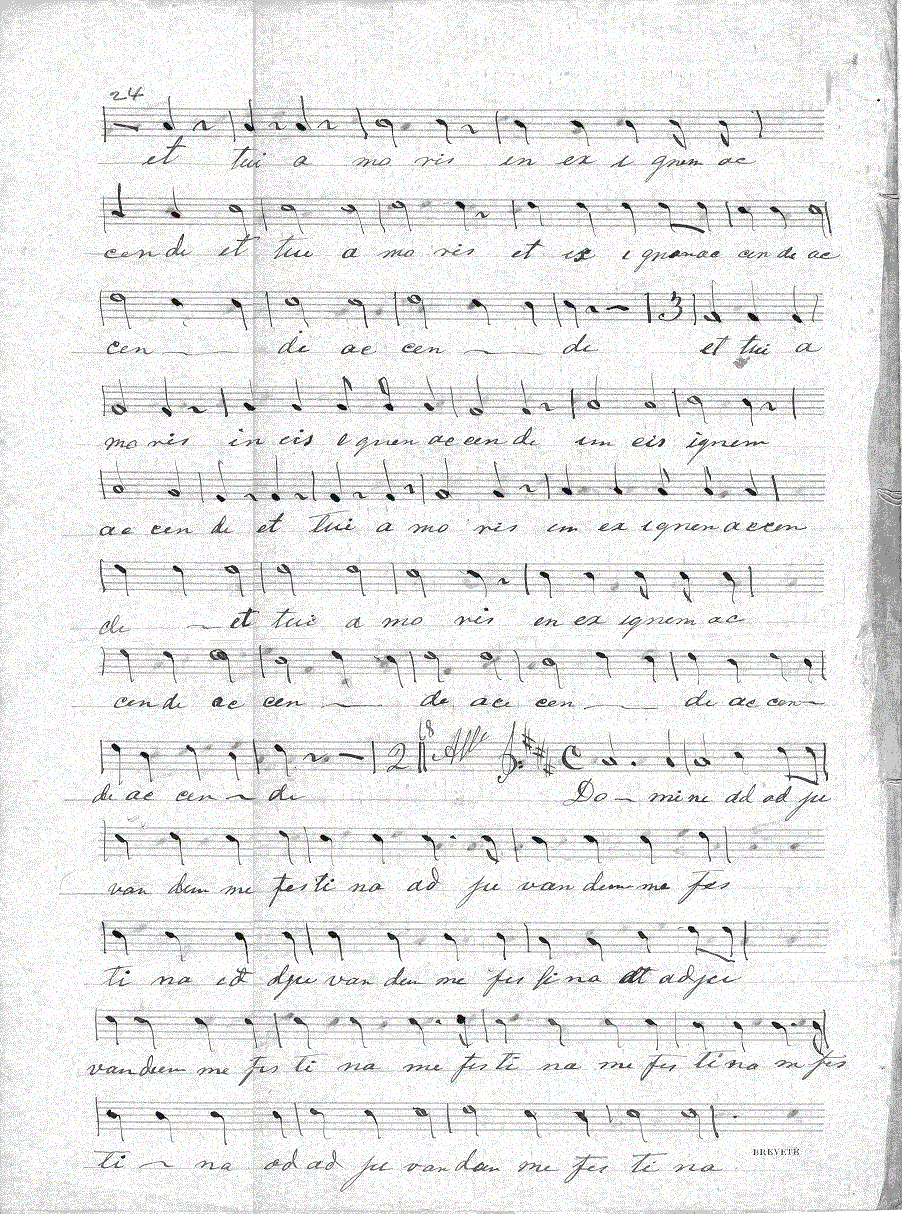 24
et tui a mo ris in ex i gnem ac
cen de et tui a mo ris et ex i gnem ac cen de ac
cen de ac cen de et tui a
mo ris in eis i gnem ac cen de im eis ignem
ac cen de et tui a mo ris im ex ignem accen
de et tui a mo ris en ex ignem ac
cen de ac cen de ace cen de ac cen
3
2 All° C
de ac cen de Do mine ad ad ju
van dum me festi na ad ju van dum me fes
ti na ed dju van dum me fes ti na at adju
vandum me fes ti na me festi na me fes tina m fes
ti na ad ad ju van dum me fes ti na
BREVETÉ